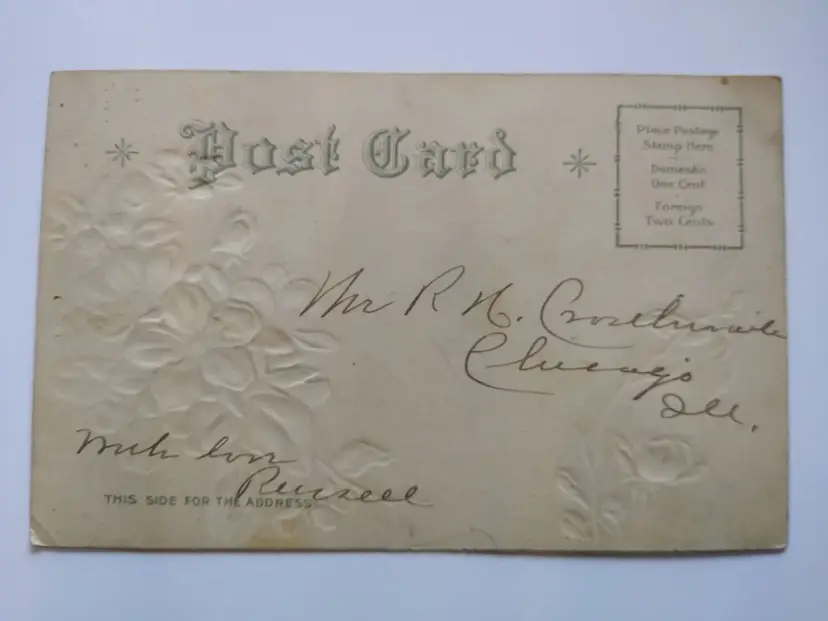 Post Card
Place Postage
Stamp Here
Domestic
One Cent
Foreign
Two Cents
Mr R. H. Crosthwaite
Chicago
Ill.
With love
Russell
THIS SIDE FOR THE ADDRESS